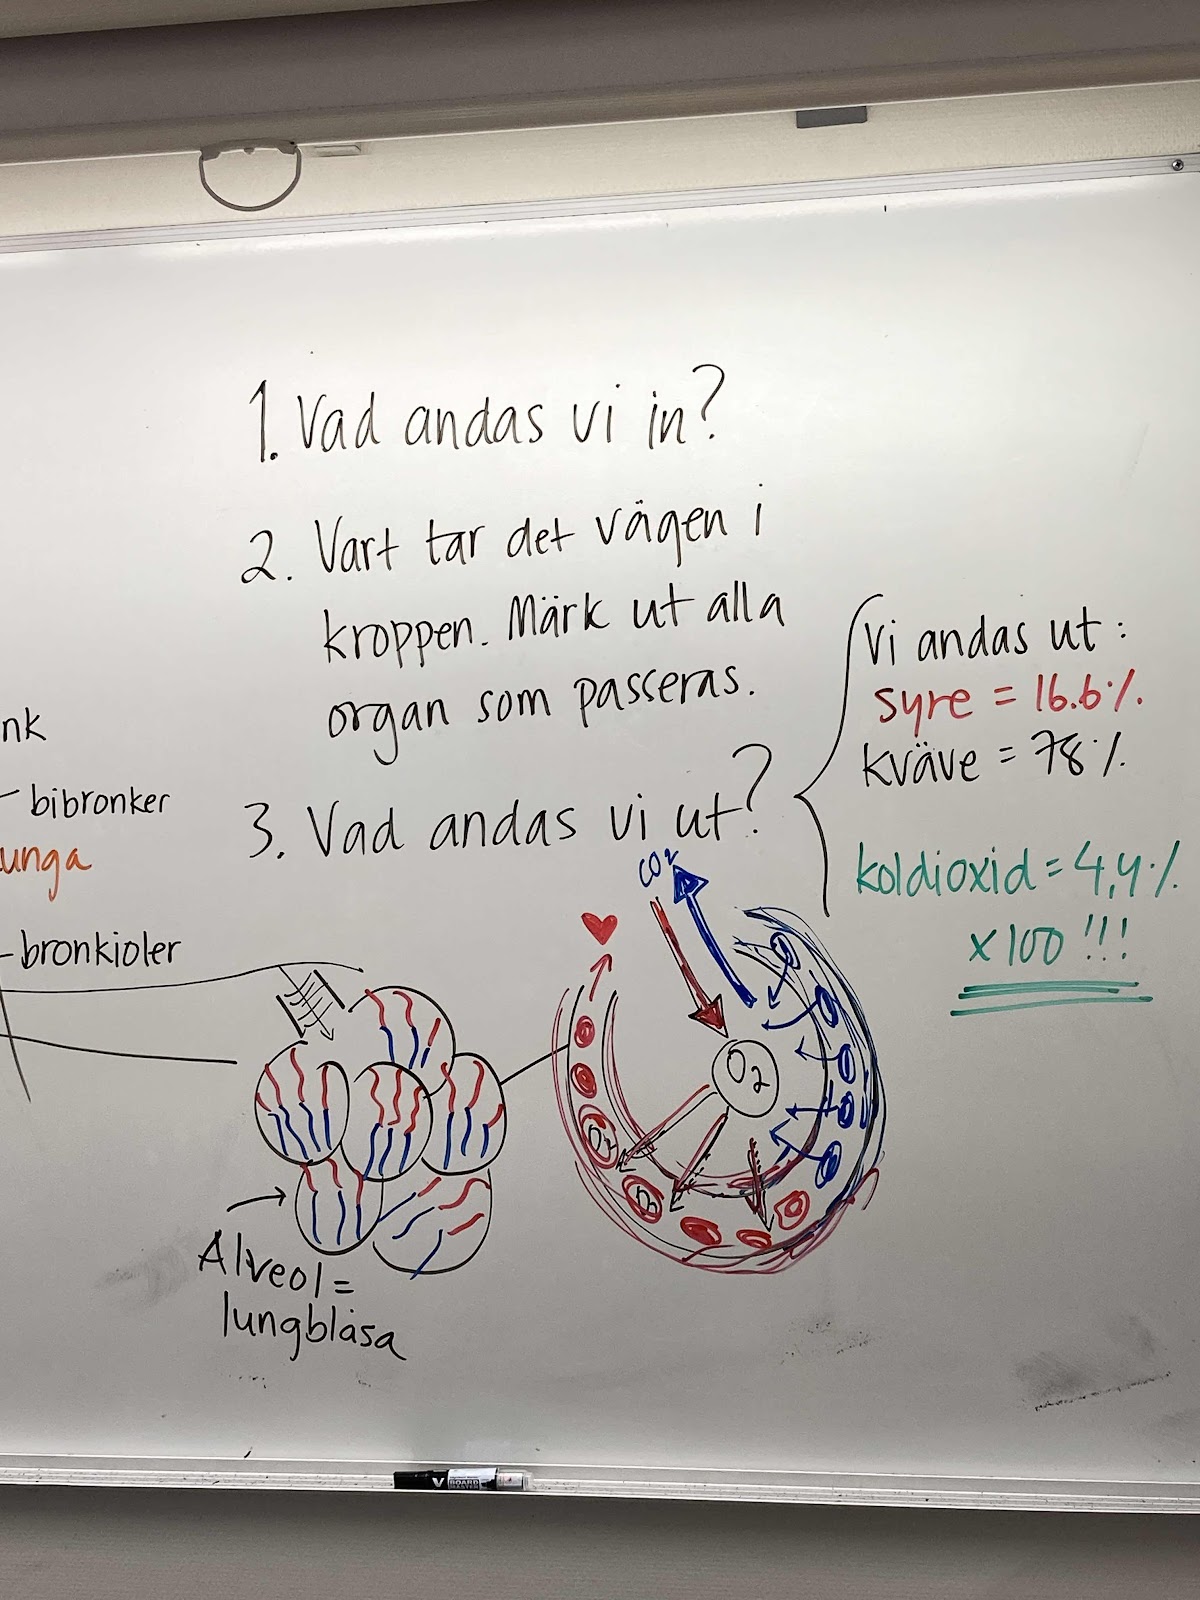 1. Vad andas vi in?
2. Vart tar det vägen i
kroppen. Märk ut alla
organ som passeras.
3. Vad andas vi ut?
vi andas ut:
syre = 16.6%
kväve = 78%
koldioxid = 4,4%
x100 !!!
nk
bibronker
unga
bronkioler
Alveol =
lungblåsa
CO2
O2
O2
O2
V BOARD MASTER